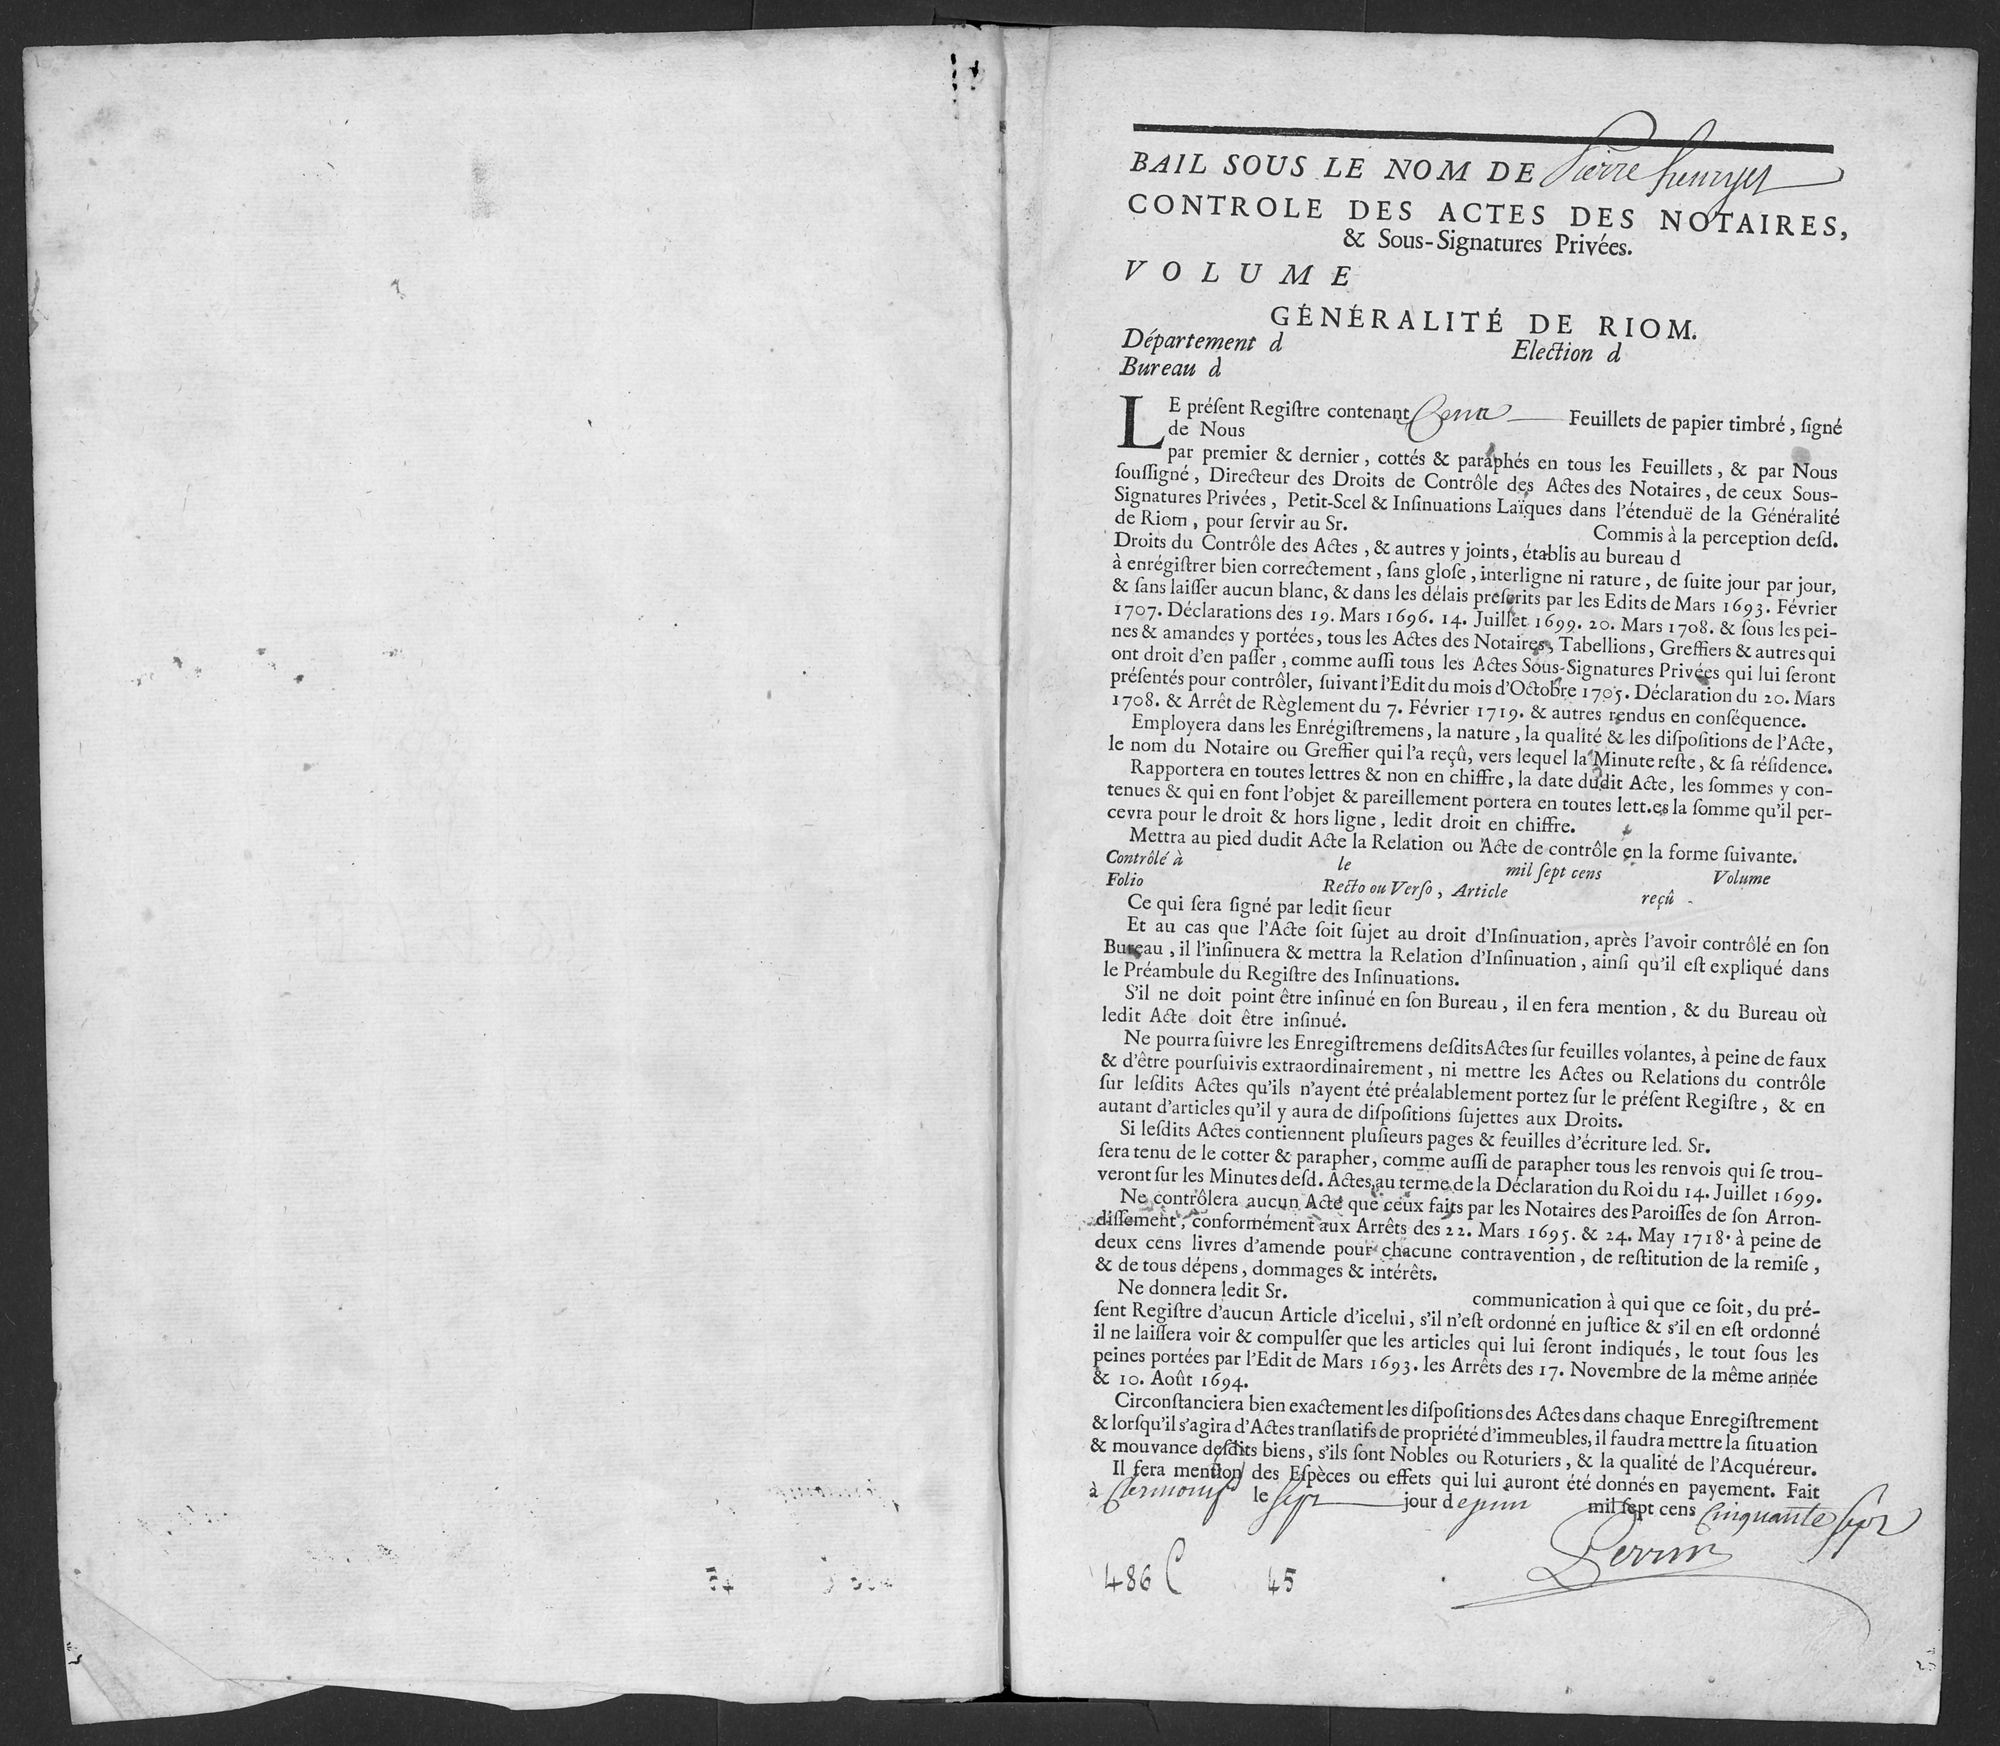 BAIL SOUS LE NOM DE Pierre henryet
CONTROLE DES ACTES DES NOTAIRES,
& Sous-Signatures Privées.
VOLUME
GÉNÉRALITÉ DE RIOM.
Département d Election d
Bureau d
LE préſent Regiſtre contenant Cent Feuillets de papier timbré, ſigné
de Nous
par premier & dernier, cottés & paraphés en tous les Feuillets, & par Nous
ſouſſigné, Directeur des Droits de Contrôle des Actes des Notaires, de ceux Sous-
Signatures Privées, Petit-Scel & Inſinuations Laïques dans l'étenduë de la Généralité
de Riom, pour ſervir au Sr. Commis à la perception deſd.
Droits du Contrôle des Actes, & autres y joints, établis au bureau d
à enrégiſtrer bien correctement, ſans gloſe, interligne ni rature, de ſuite jour par jour,
& ſans laiſſer aucun blanc, & dans les délais preſcrits par les Edits de Mars 1693. Février
1707. Déclarations des 19. Mars 1696. 14. Juillet 1699. 20. Mars 1708. & ſous les pei-
nes & amandes y portées, tous les Actes des Notaires, Tabellions, Greffiers & autres qui
ont droit d'en paſſer, comme auſſi tous les Actes Sous-Signatures Privées qui lui ſeront
préſentés pour contrôler, ſuivant l'Edit du mois d'Octobre 1705. Déclaration du 20. Mars
1708. & Arrêt de Règlement du 7. Février 1719. & autres rendus en conſéquence.
Employera dans les Enrégiſtremens, la nature, la qualité & les diſpoſitions de l'Acte,
le nom du Notaire ou Greffier qui l'a reçû, vers lequel la Minute reſte, & ſa réſidence.
Rapportera en toutes lettres & non en chiffre, la date dudit Acte, les ſommes y con-
tenues & qui en font l'objet & pareillement portera en toutes lett.es la ſomme qu'il per-
cevra pour le droit & hors ligne, ledit droit en chiffre.
Mettra au pied dudit Acte la Relation ou Acte de contrôle en la forme ſuivante.
Contrôlé à le mil ſept cens Volume
Folio Recto ou Verſo, Article reçû
Ce qui ſera ſigné par ledit ſieur
Et au cas que l'Acte ſoit ſujet au droit d'Inſinuation, après l'avoir contrôlé en ſon
Bureau, il l'inſinuera & mettra la Relation d'Inſinuation, ainſi qu'il eſt expliqué dans
le Préambule du Regiſtre des Inſinuations.
S'il ne doit point être inſinué en ſon Bureau, il en fera mention, & du Bureau où
ledit Acte doit être inſinué.
Ne pourra ſuivre les Enregiſtremens deſdits Actes ſur feuilles volantes, à peine de faux
& d'être pourſuivis extraordinairement, ni mettre les Actes ou Relations du contrôle
ſur leſdits Actes qu'ils n'ayent été préalablement portez ſur le préſent Regiſtre, & en
autant d'articles qu'il y aura de diſpoſitions ſujettes aux Droits.
Si leſdits Actes contiennent pluſieurs pages & feuilles d'écriture led. Sr.
ſera tenu de le cotter & parapher, comme auſſi de parapher tous les renvois qui ſe trou-
veront ſur les Minutes deſd. Actes, au terme de la Déclaration du Roi du 14. Juillet 1699.
Ne contrôlera aucun Acte que ceux faits par les Notaires des Paroiſſes de ſon Arron-
diſſement, conformément aux Arrêts des 22. Mars 1695. & 24. May 1718. à peine de
deux cens livres d'amende pour chacune contravention, de reſtitution de la remiſe,
& de tous dépens, dommages & intérêts.
Ne donnera ledit Sr. communication à qui que ce ſoit, du pré-
ſent Regiſtre d'aucun Article d'icelui, s'il n'eſt ordonné en juſtice & s'il en eſt ordonné
il ne laiſſera voir & compulſer que les articles qui lui ſeront indiqués, le tout ſous les
peines portées par l'Edit de Mars 1693. les Arrêts des 17. Novembre de la même année
& 10. Août 1694.
Circonſtanciera bien exactement les diſpoſitions des Actes dans chaque Enregiſtrement
& lorſqu'il s'agira d'Actes tranſlatifs de propriété d'immeubles, il faudra mettre la ſituation
& mouvance deſdits biens, s'ils ſont Nobles ou Roturiers, & la qualité de l'Acquéreur.
Il fera mention des Eſpèces ou effets qui lui auront été donnés en payement. Fait
à Clermont le sept jour de juin mil ſept cens Cinquante sept
Perrin
486 C 45